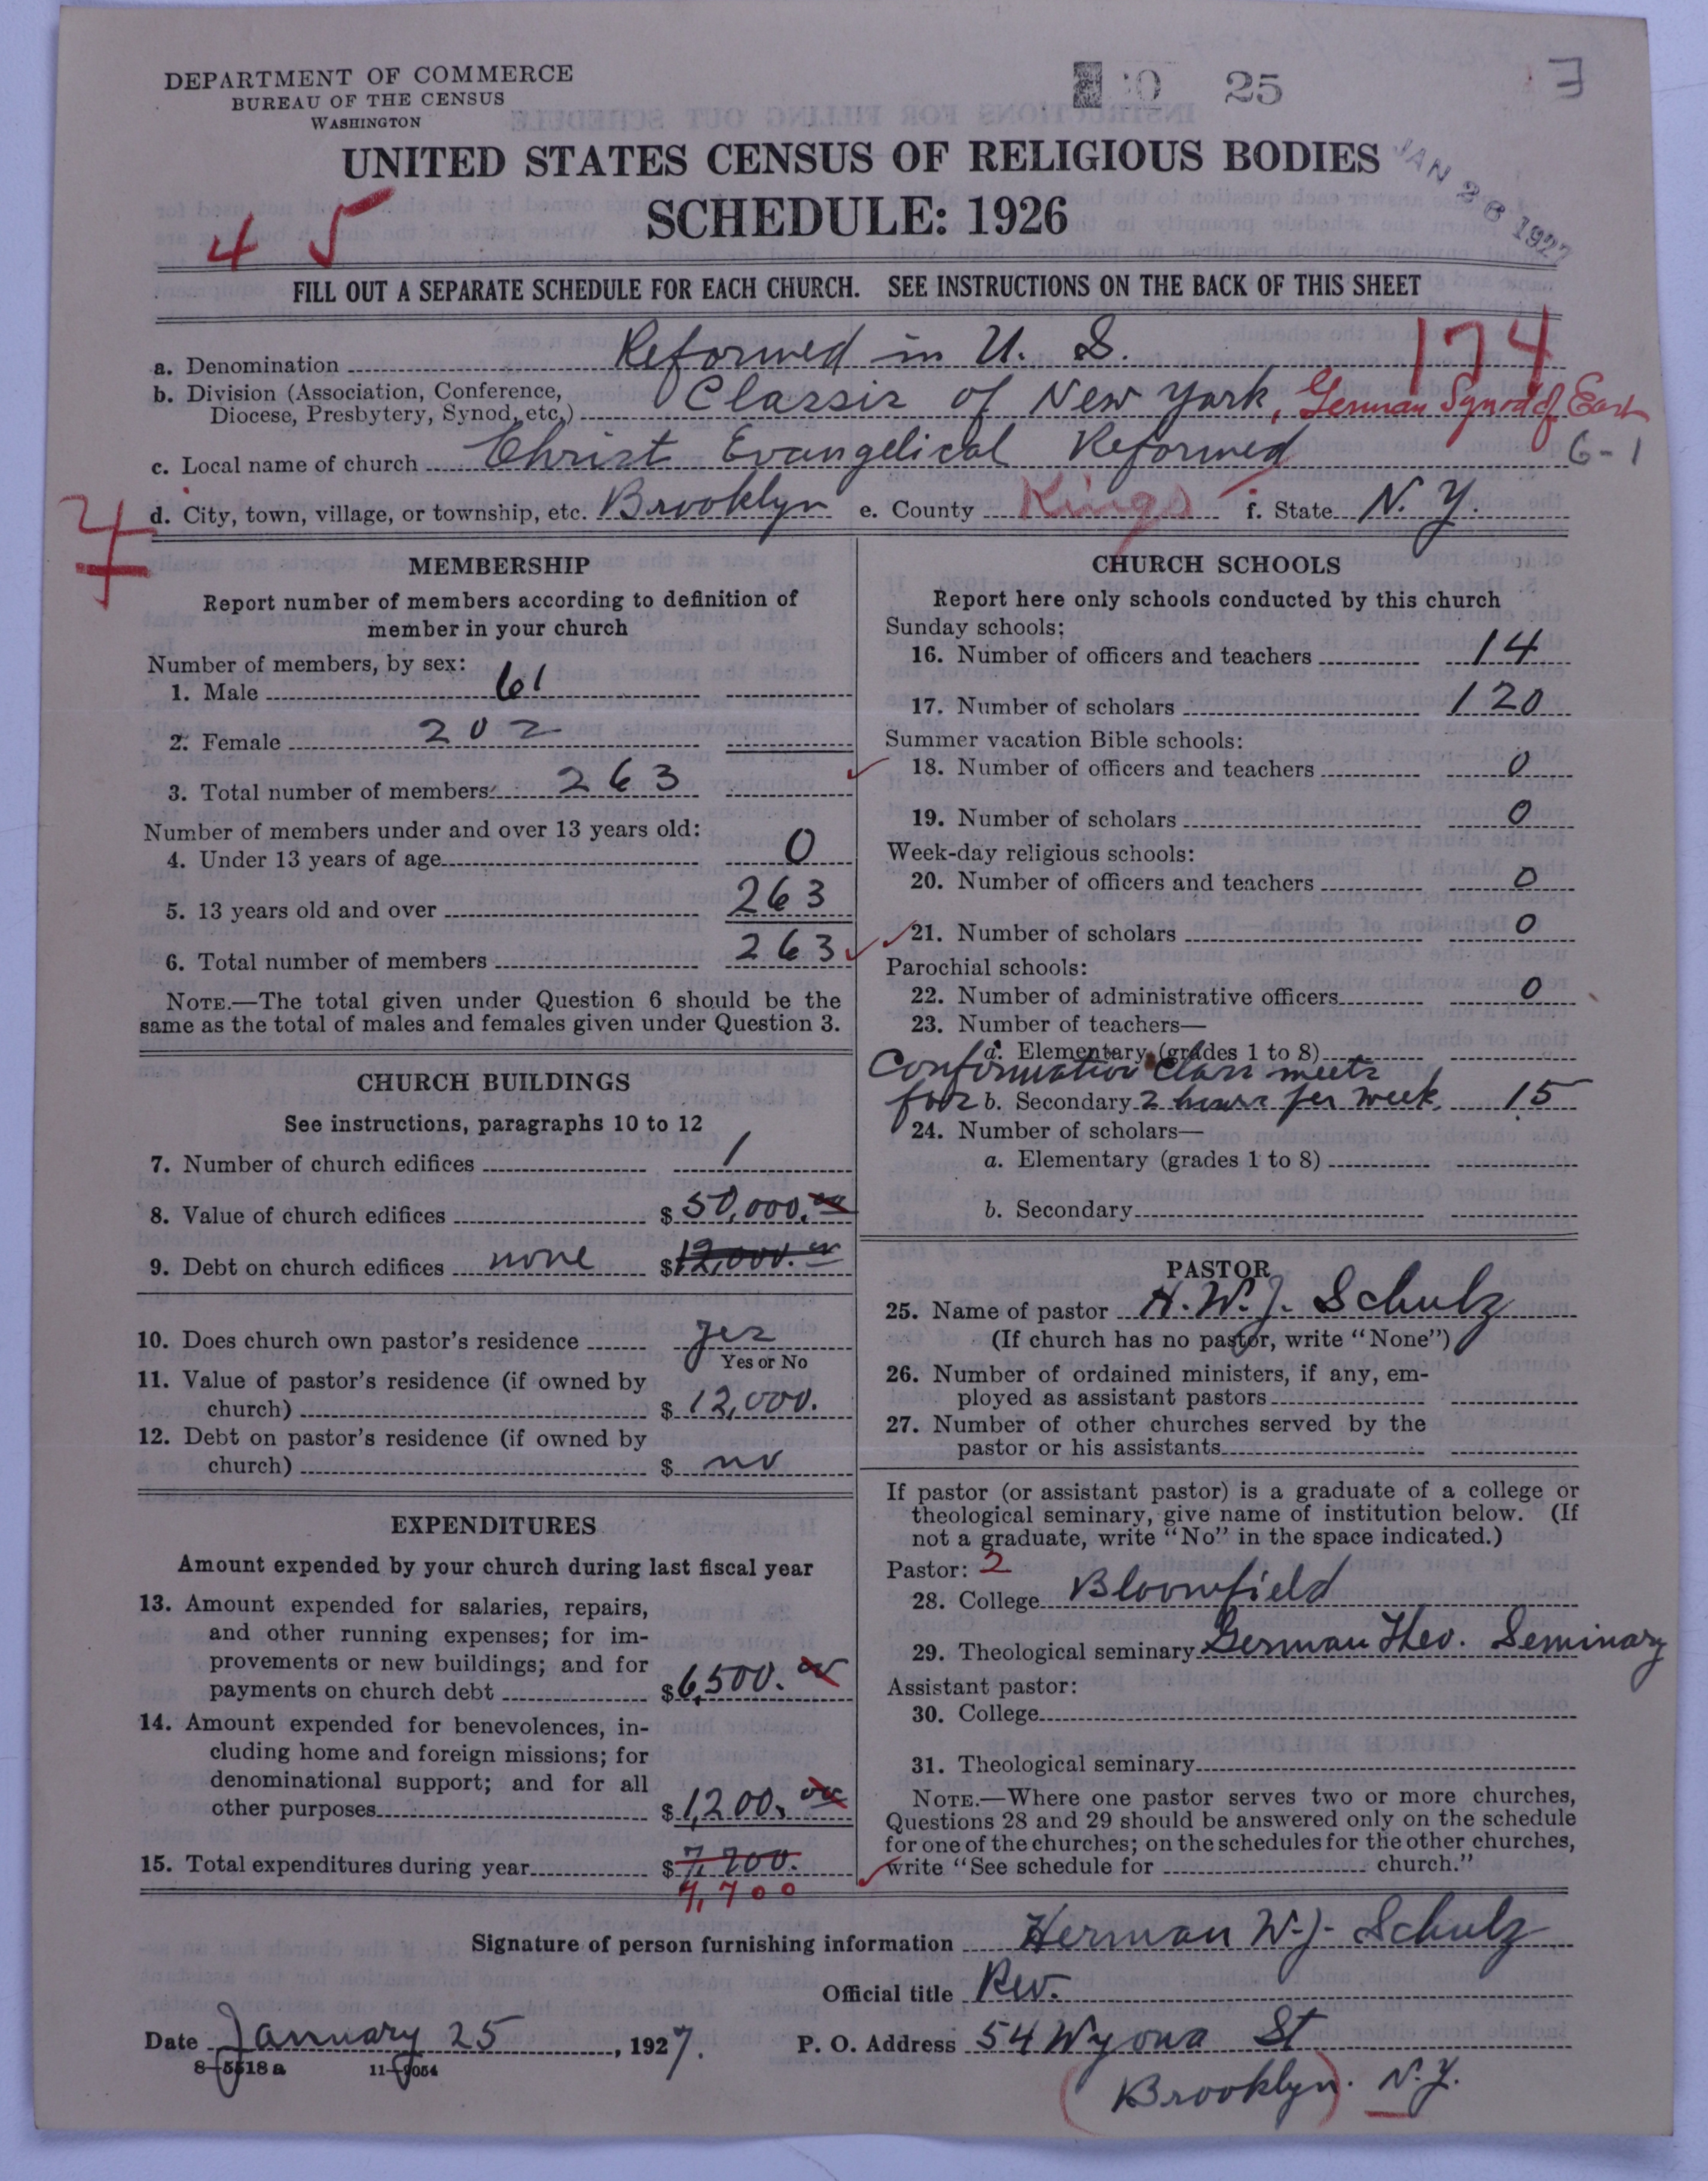 DEPARTMENT OF COMMERCE
BUREAU OF THE CENSUS
WASHINGTON
25
UNITED STATES CENSUS OF RELIGIOUS BODIES
JAN 28 1927
SCHEDULE: 1926
4 5
FILL OUT A SEPARATE SCHEDULE FOR EACH CHURCH. SEE INSTRUCTIONS ON THE BACK OF THIS SHEET
174
a. Denomination Reformed in U. S.
b. Division (Association, Conference,
Diocese, Presbytery, Synod, etc.) Classis of New York, German Synod of East
c. Local name of church Christ Evangelical Reformed 6-1
d. City, town, village, or township, etc. Brooklyn e. County Kings f. State N. Y.
MEMBERSHIP
Report number of members according to definition of
member in your church
Number of members, by sex:
1. Male 61
2. Female 202
3. Total number of members 263
Number of members under and over 13 years old:
4. Under 13 years of age 0
5. 13 years old and over 263
6. Total number of members 263
NOTE.—The total given under Question 6 should be the
same as the total of males and females given under Question 3.
CHURCH BUILDINGS
See instructions, paragraphs 10 to 12
7. Number of church edifices 1
8. Value of church edifices $ 50,000.00
9. Debt on church edifices none $ 12,000.00
10. Does church own pastor's residence yes
Yes or No
11. Value of pastor's residence (if owned by
church) $ 12,000.
12. Debt on pastor's residence (if owned by
church) $ no
EXPENDITURES
Amount expended by your church during last fiscal year
13. Amount expended for salaries, repairs,
and other running expenses; for im-
provements or new buildings; and for
payments on church debt $ 6,500.00
14. Amount expended for benevolences, in-
cluding home and foreign missions; for
denominational support; and for all
other purposes $ 1,200.00
15. Total expenditures during year $ 7,700.
7,700
CHURCH SCHOOLS
Report here only schools conducted by this church
Sunday schools:
16. Number of officers and teachers 14
17. Number of scholars 120
Summer vacation Bible schools:
18. Number of officers and teachers 0
19. Number of scholars 0
Week-day religious schools:
20. Number of officers and teachers 0
21. Number of scholars 0
Parochial schools:
22. Number of administrative officers 0
23. Number of teachers—
a. Elementary (grades 1 to 8)
Confirmation Class meets
for b. Secondary 2 hours per week. 15
24. Number of scholars—
a. Elementary (grades 1 to 8)
b. Secondary
PASTOR
25. Name of pastor H. W. J. Schulz
(If church has no pastor, write "None")
26. Number of ordained ministers, if any, em-
ployed as assistant pastors
27. Number of other churches served by the
pastor or his assistants
If pastor (or assistant pastor) is a graduate of a college or
theological seminary, give name of institution below. (If
not a graduate, write "No" in the space indicated.)
Pastor: 2
28. College Bloomfield
29. Theological seminary German Theo. Seminary
Assistant pastor:
30. College
31. Theological seminary
NOTE.—Where one pastor serves two or more churches,
Questions 28 and 29 should be answered only on the schedule
for one of the churches; on the schedules for the other churches,
write "See schedule for church."
Signature of person furnishing information Herman W. J. Schulz
Official title Rev.
Date January 25, 1927. P. O. Address 54 Wyona St
8-5518a 11-9054
(Brooklyn). N. Y.